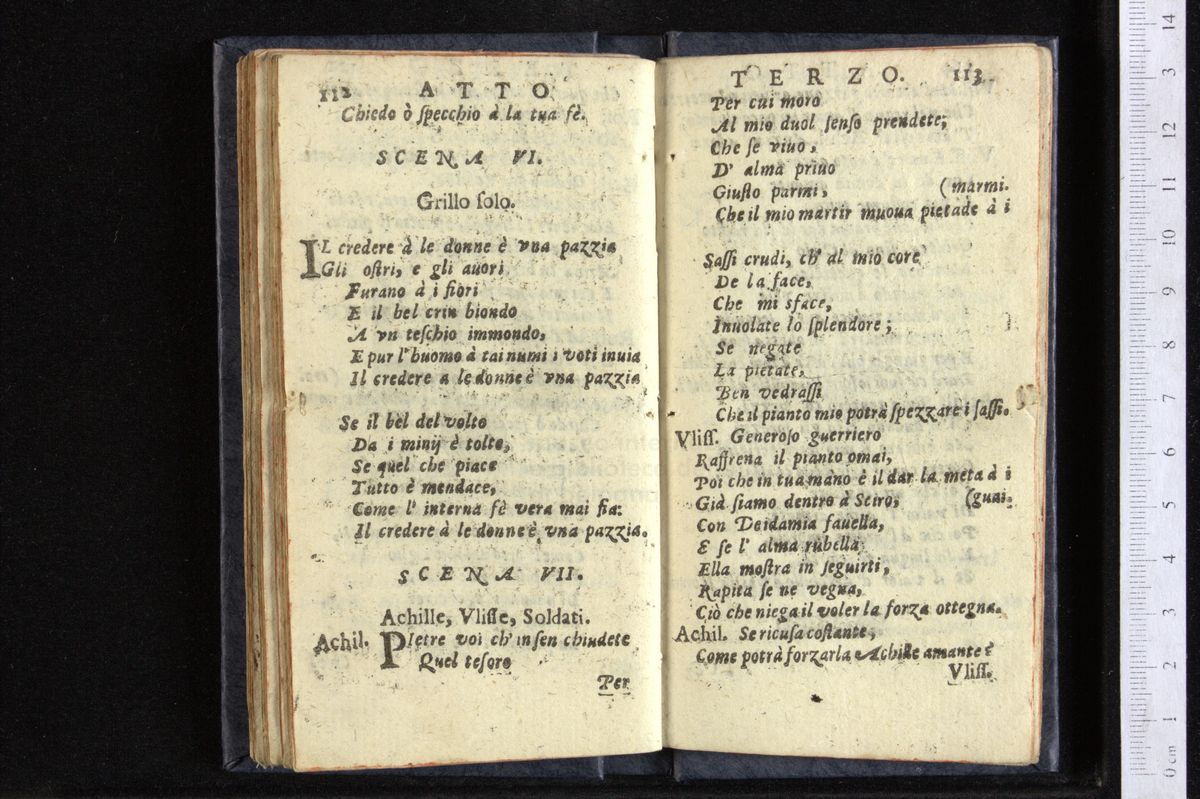 112 ATTO
Chiedo ò ſpecchio à la tua fè.
SCENA VI.
Grillo ſolo.
IL credere à le donne è vna pazzia
Gli oſtri, e gli auori
Furano à i fiori
E il bel crin biondo
A vn teſchio immondo,
E pur l'huomo à tai numi i voti inuia
Il credere a le donne è vna pazzia
Se il bel del volto
Da i minij è tolto,
Se quel che piace
Tutto è mendace,
Come l' interna fè vera mai fia:
Il credere à le donne è vna pazzia.
SCENA VII.
Achille, Vliſſe, Soldati.
Achil. PIetre voi ch' in ſen chiudete
Quel teſoro
Per
TERZO. 113
Per cui moro
Al mio duol ſenſo prendete;
Che ſe viuo,
D' alma priuo
Giuſto parmi, (marmi.
Che il mio martir muoua pietade à i
Saſſi crudi, ch' al mio core
De la face,
Che mi sface,
Inuolate lo ſplendore;
Se negate
La pietate,
Ben vedraſſi
Che il pianto mio potrà ſpezzare i ſaſſi.
Vliſſ. Generoſo guerriero
Raffrena il pianto omai,
Poi che in tua mano è il dar la meta à i
Già ſiamo dentro à Sciro, (guai.
Con Deidamia fauella,
E ſe l' alma rubella
Ella moſtra in ſeguirti,
Rapita ſe ne vegna,
Ciò che niega il voler la forza ottegna.
Achil. Se ricuſa coſtante,
Come potrà forzarla Achille amante?
Vliſſ.
0 cm 1 2 3 4 5 6 7 8 9 10 11 12 3 14